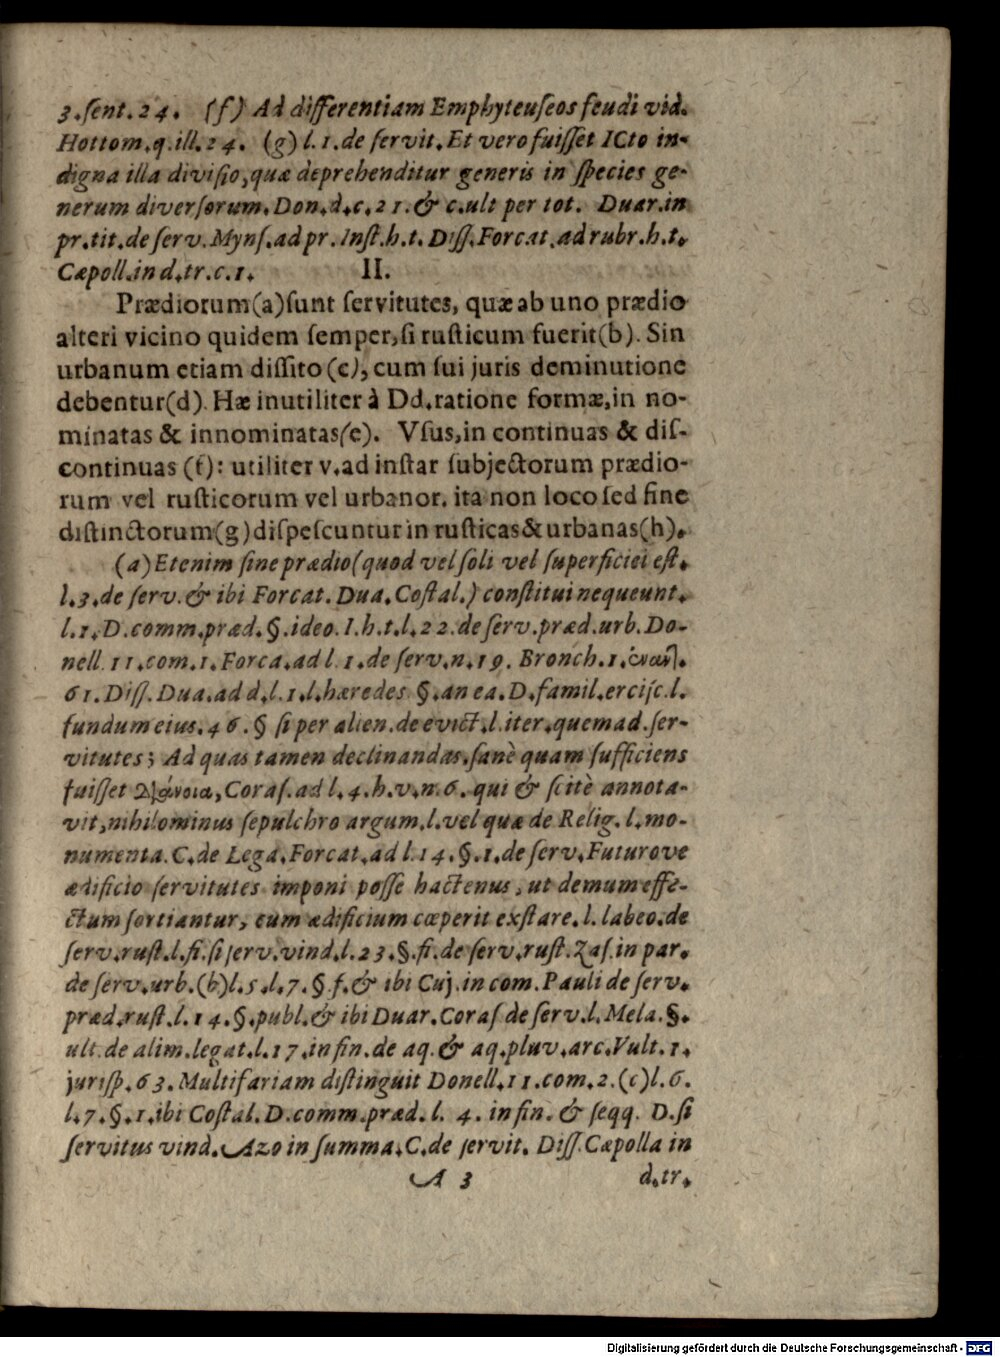 3.ſent.24. (f) Ad differentiam Emphyteuſeos feudi vid.
Hottom.q.ill.24. (g) l.1.de ſervit.Et vero fuiſſet ICto in-
digna illa diviſio,quæ deprehenditur generis in ſpecies ge-
nerum diverſorum.Don.d.c.21.& c.ult per tot. Duar.in
pr.tit.de ſerv.Mynſ.ad pr.Inſt.h.t. Diſſ.Forcat.ad rubr.h.t.
Cæpoll.in d.tr.c.1. II.
Prædiorum(a)ſunt ſervitutes, quæ ab uno prædio
alteri vicino quidem ſemper,ſi ruſticum fuerit(b). Sin
urbanum etiam diſſito (c), cum ſui juris deminutione
debentur(d). Hæ inutiliter à Dd.ratione formæ,in no-
minatas & innominatas(e). Vſus,in continuas & diſ-
continuas (f): utiliter v.ad inſtar ſubjectorum prædio-
rum vel ruſticorum vel urbanor. ita non loco ſed fine
diſtinctorum(g)diſpeſcuntur in ruſticas & urbanas(h).
(a)Etenim ſine prædio(quod vel ſoli vel ſuperficiei eſt.
l.3.de ſerv.& ibi Forcat. Dua. Coſtal.) conſtitui nequeunt.
l.1.D.comm.præd.§.ideo.I.h.t.l.22.de ſerv.præd.urb.Do-
nell.11.com.1.Forca.ad l.1.de ſerv.n.19. Bronch.1.
61.Diſſ.Dua.ad d.l.1.l.hæredes §.an ea.D.famil.erciſc.l.
fundum eius.46.§ ſi per alien.de evict.l.iter.quemad.ſer-
vitutes; Ad quas tamen declinandas.ſanè quam ſufficiens
fuiſſet Διάνοια, Coraſ.ad l.4.h.v.n.6. qui & ſcitè annota-
vit,nihilominus ſepulchro argum.l.vel quæ de Relig.l.mo-
numenta.C.de Lega.Forcat.ad l.14.§.1.de ſerv.Futurove
ædificio ſervitutes imponi poſſe hactenus, ut demum effe-
ctum ſortiantur, cum ædificium cœperit exſtare.l.labeo.de
ſerv.ruſt.l.fi.ſi ſerv.vind.l.23.§.fi.de ſerv.ruſt.Zaſ.in par.
de ſerv.urb.(b)l.5.l.7.§.f.& ibi Cuj.in com.Pauli de ſerv.
præd.ruſt.l.14.§.publ.& ibi Duar.Coraſ de ſerv.l.Mela.§.
ult.de alim.legat.l.17.in fin.de aq.& aq.pluv.arc.Vult.1.
juriſp.63.Multifariam diſtinguit Donell.11.com.2.(c)l.6.
l.7.§.1.ibi Coſtal.D.comm.præd.l. 4. in fin. & ſeqq. D.ſi
ſervitus vind.Azo in ſumma.C.de ſervit. Diſſ.Cæpolla in
A 3 d.tr.
Digitalisierung gefördert durch die Deutsche Forschungsgemeinschaft - DFG